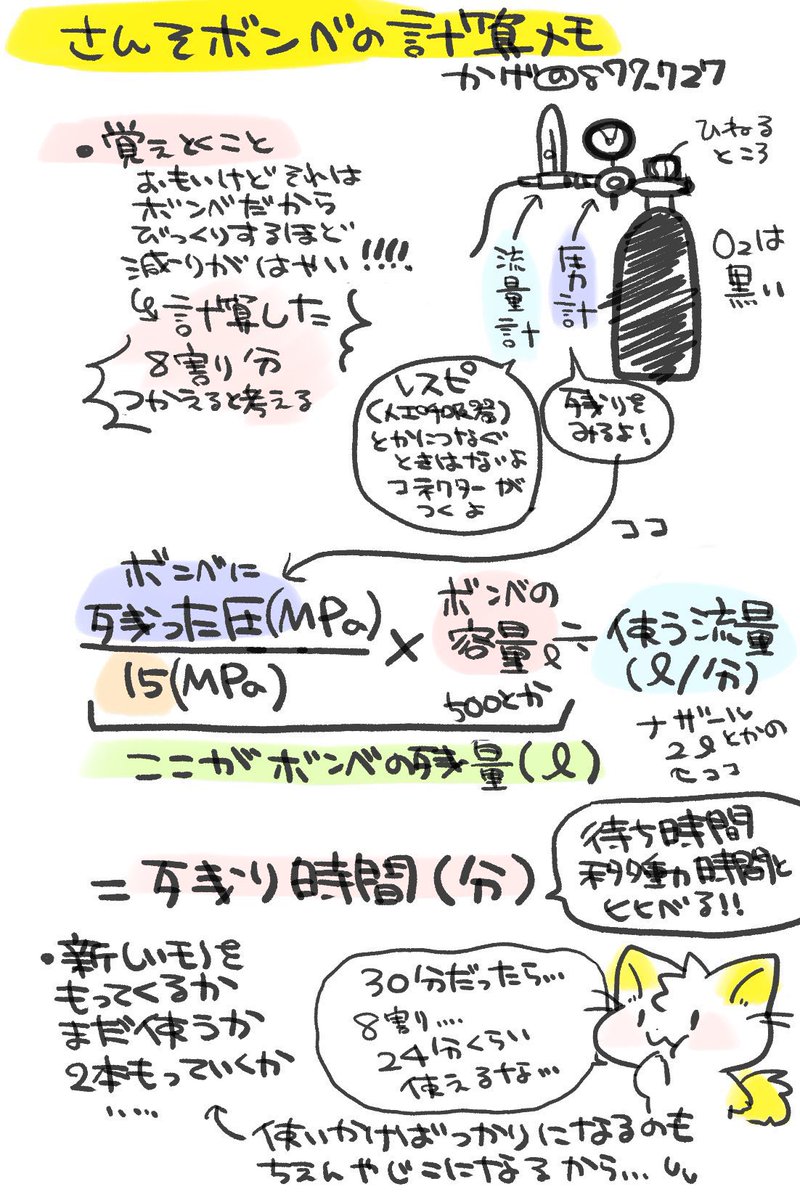 さんそボンベの計算メモ
かげの877_727
・覚えとくこと
おもいけどそれは
ボンベだから
びっくりするほど
減りがはやい!!!!
↳計算した
8割り分
つかえると考える
ひねる
ところ
O₂は
黒い
流量計
圧力計
レスピ
(人工呼吸器)
とかにつなぐ
ときはないよ
コネクターが
つくよ
残りを
みるよ!
ココ
ボンベに
残った圧(MPa)
15(MPa)
×
ボンベの
容量ℓ
500とか
÷
使う流量
(ℓ/分)
ナザール
2ℓとかの
←ココ
ここがボンベの残量(ℓ)
=残り時間(分)
待ち時間
移動時間と
くらべる!!
・新しいモノを
もってくるか
まだ使うか
2本もっていくか
……
30分だったら…
8割り….
24分くらい
使えるな…
使いかけばっかりになるのも
ちえんやじこになるから…